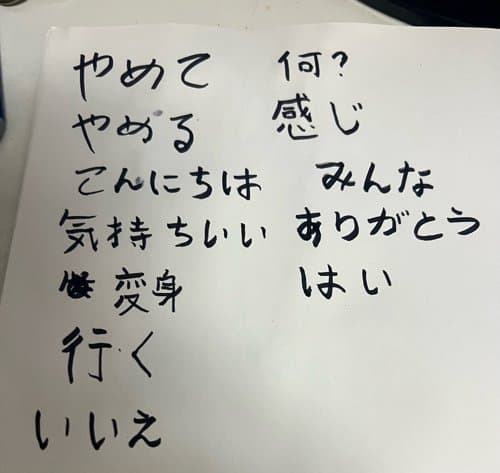 やめて
やめる
こんにちは
気持ちいい
変身
行く
いいえ
何?
感じ
みんな
ありがとう
はい